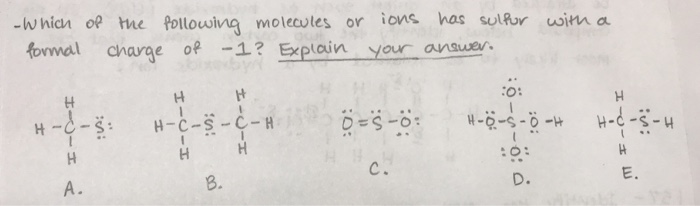 -Which of the following molecules or ions has sulfur with a
formal charge of -1? Explain your answer.
H H H :Ö: H
H-C-S̈: H-C-S̈-C-H Ö=S̈-Ö: H-Ö-S-Ö-H H-C-S̈-H
H H H :Ö: H
A. B. C. D. E.